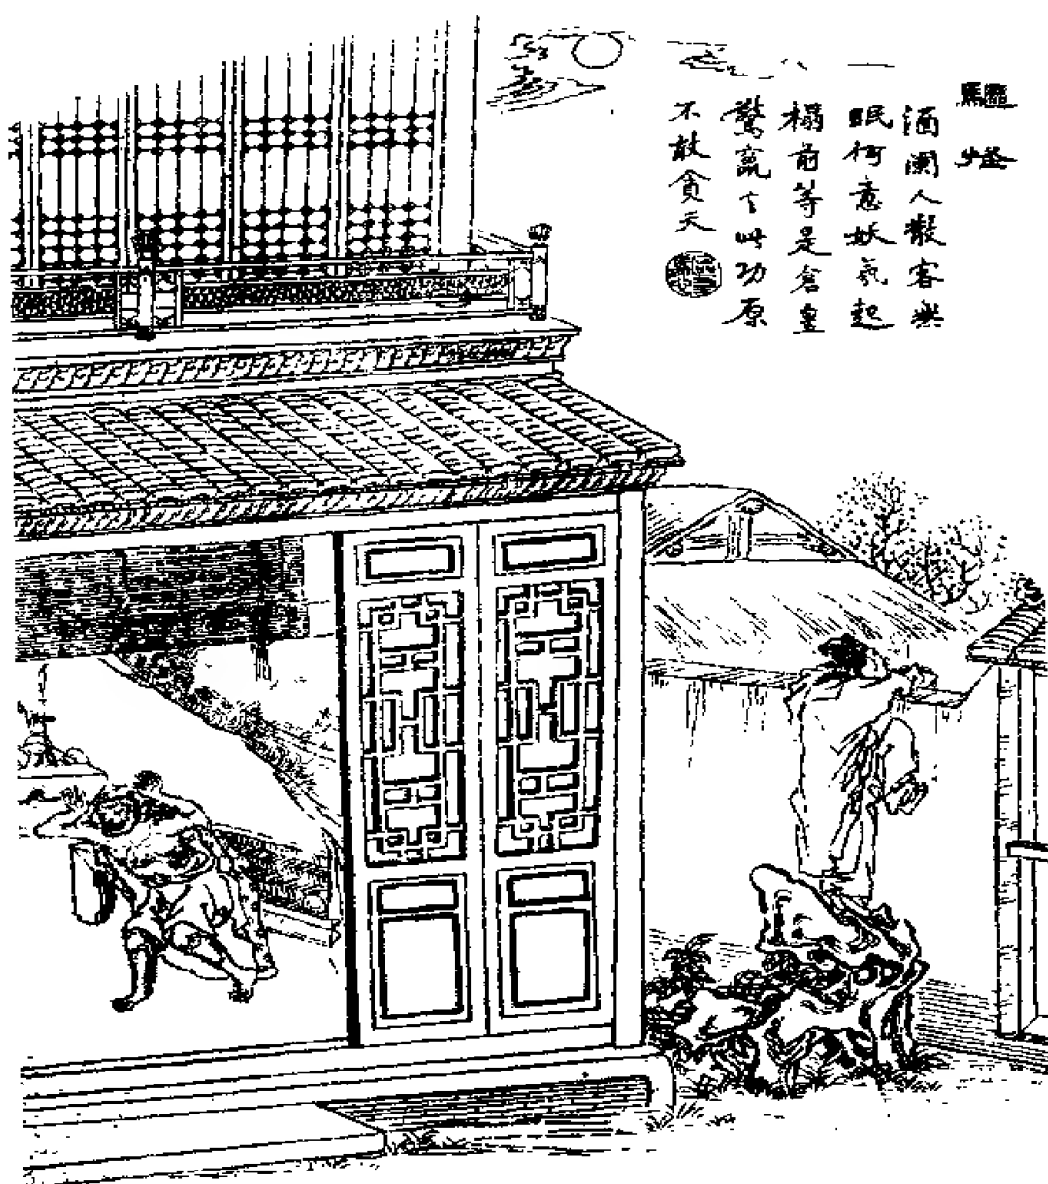 驅怪
酒闌人散客樂
眠何意妖氛起
榻前等是倉皇
驚竄去此功原
不敢貪天